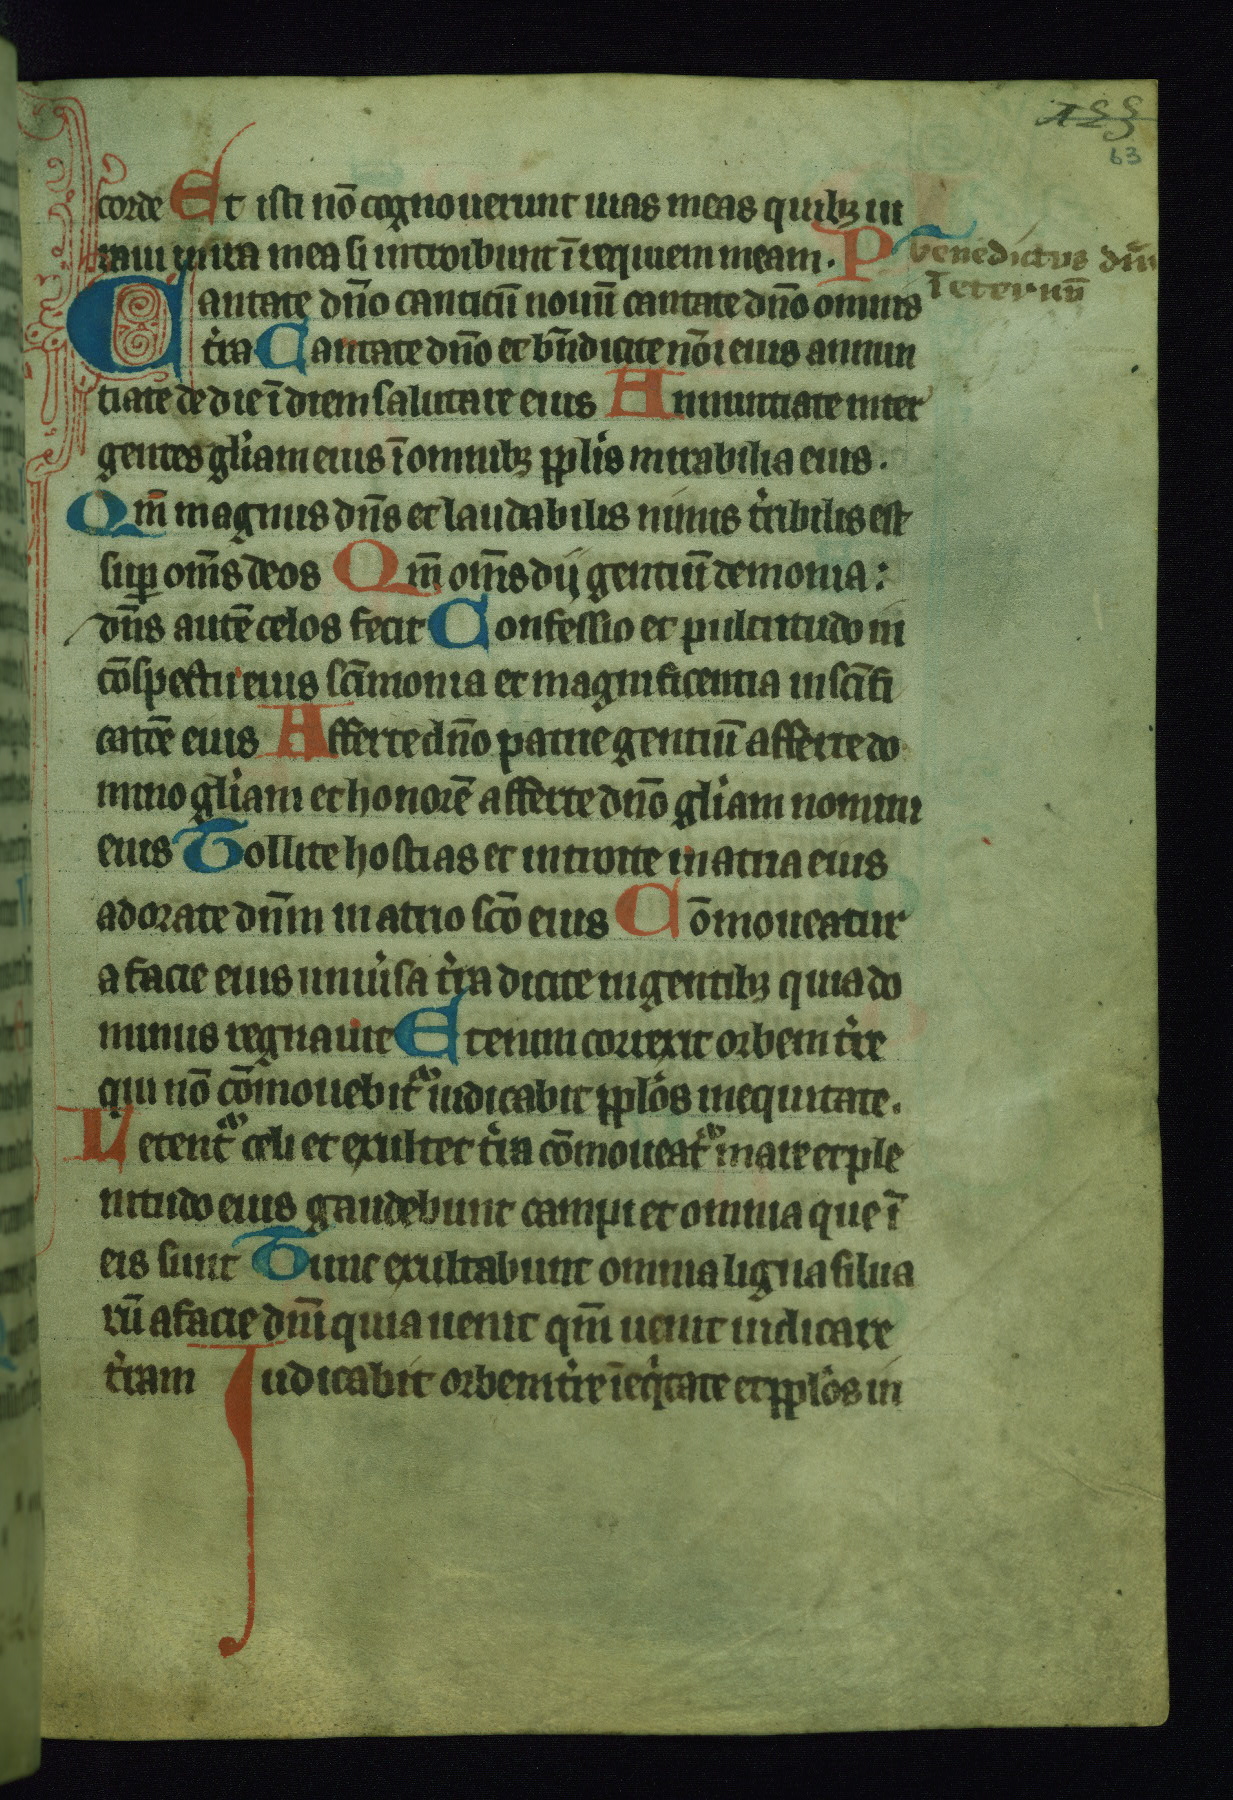 63
corde Et isti nō cognouerunt uias meas quibꝫ iu
raui in ira mea si introibunt ī requiem meam. P
benedictus dn̄s
I eternū
Cantate dn̄o canticū nouū cantate dn̄o omnis
tͥra Cantate dn̄o et bn̄dicite nōi eius annun
tiate de die ī diem salutare eius Annuntiate inter
gentes gl̕iam eius ī omnibꝫ ppl̕is mirabilia eius.
Qm̄ magnus dn̄s et laudabilis nimis tͥribilis est
suꝑ om̄s deos Qm̄ om̄s dij gentiū demonia:
dn̄s autē celos fecit Confessio et pulcritudo in
cōspectu eius sc̄imonia et magnificentia in sc̄ifi
catōe eius Afferte dn̄o patrie gentiū afferte do
mino gl̕iam et honorē afferte dn̄o gl̕iam nomini
eius Tollite hostias et introite in atria eius
adorate dn̄m in atrio sc̄o eius Cōmoueatur
a facie eius uniu̕sa tͥra dicite in gentibꝫ quia do
minus regnauit Etenim correxit orbem tͥre
qui nō cōmouebit᷑ iudicabit ppl̕os in equitate.
Letent᷑ celi et exultet tͥra cōmoueat᷑ mare et ple
nitudo eius gaudebunt campi et omnia que ī
eis sunt Tunc exultabunt omnia ligna silua
rū a facie dn̄i quia uenit qm̄ uenit iudicare
tͥram Iudicabit orbem tͥre ī eqͥtate et ppl̕os in